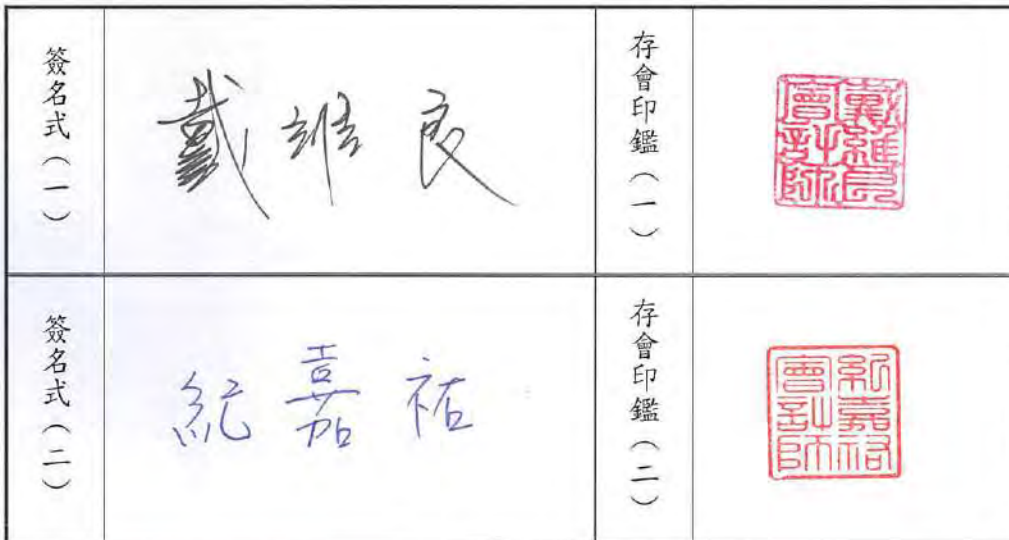 簽名式（一）
戴維良
存會印鑑（一）
戴維良
會計師
簽名式（二）
紀嘉祐
存會印鑑（二）
紀嘉祐
會計師